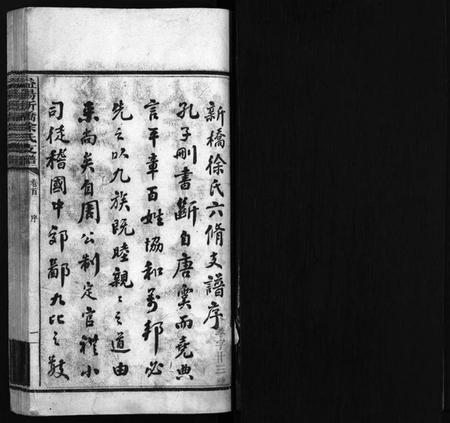 新橋徐氏六脩支譜序
孔子刪書斷自唐虞而堯典
言平章百姓協和萬邦必
先之以九族既睦親〻之道由
來尚矣自周公制定官禮小
司徒稽國中郊鄙九比之數
益陽新橋徐氏支譜
卷首
序
一